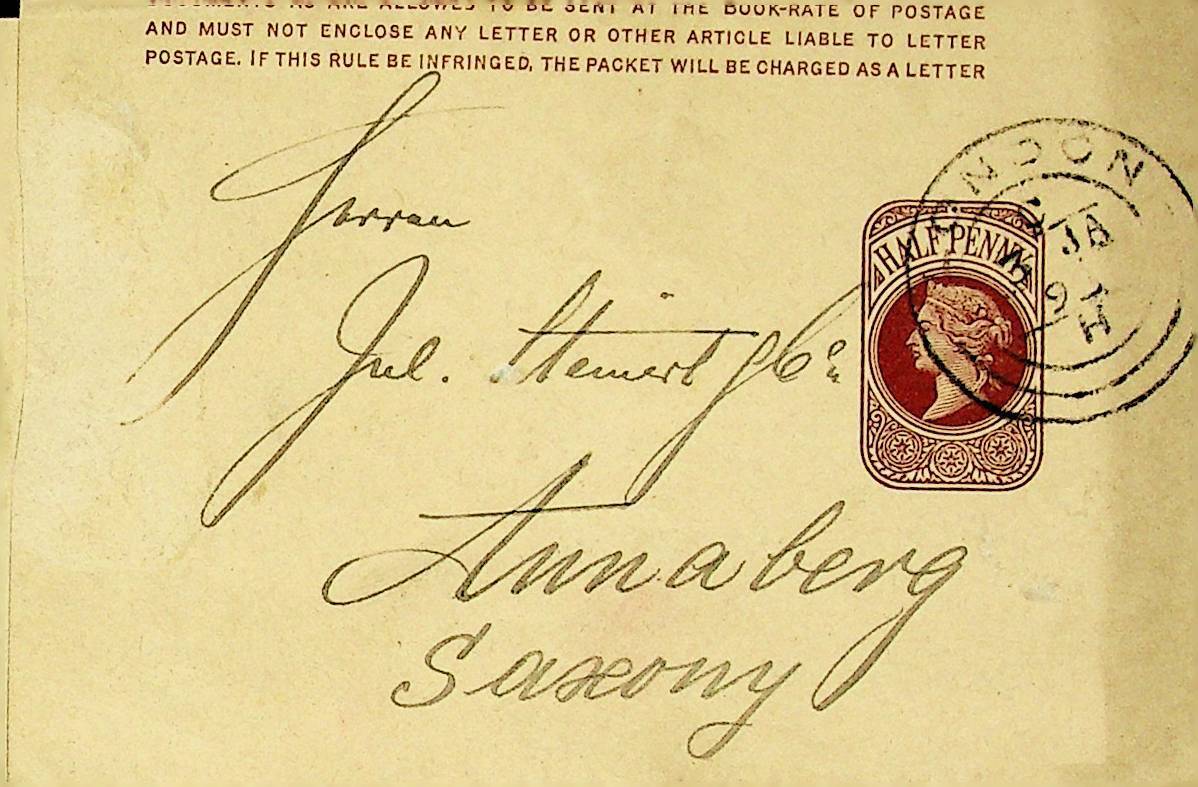 DOCUMENTS AS ARE ALLOWED TO BE SENT AT THE BOOK-RATE OF POSTAGE
AND MUST NOT ENCLOSE ANY LETTER OR OTHER ARTICLE LIABLE TO LETTER
POSTAGE. IF THIS RULE BE INFRINGED, THE PACKET WILL BE CHARGED AS A LETTER
Herren
Jul.
Annaberg
Saxony
HALFPENNY
LONDON
JA
91
H